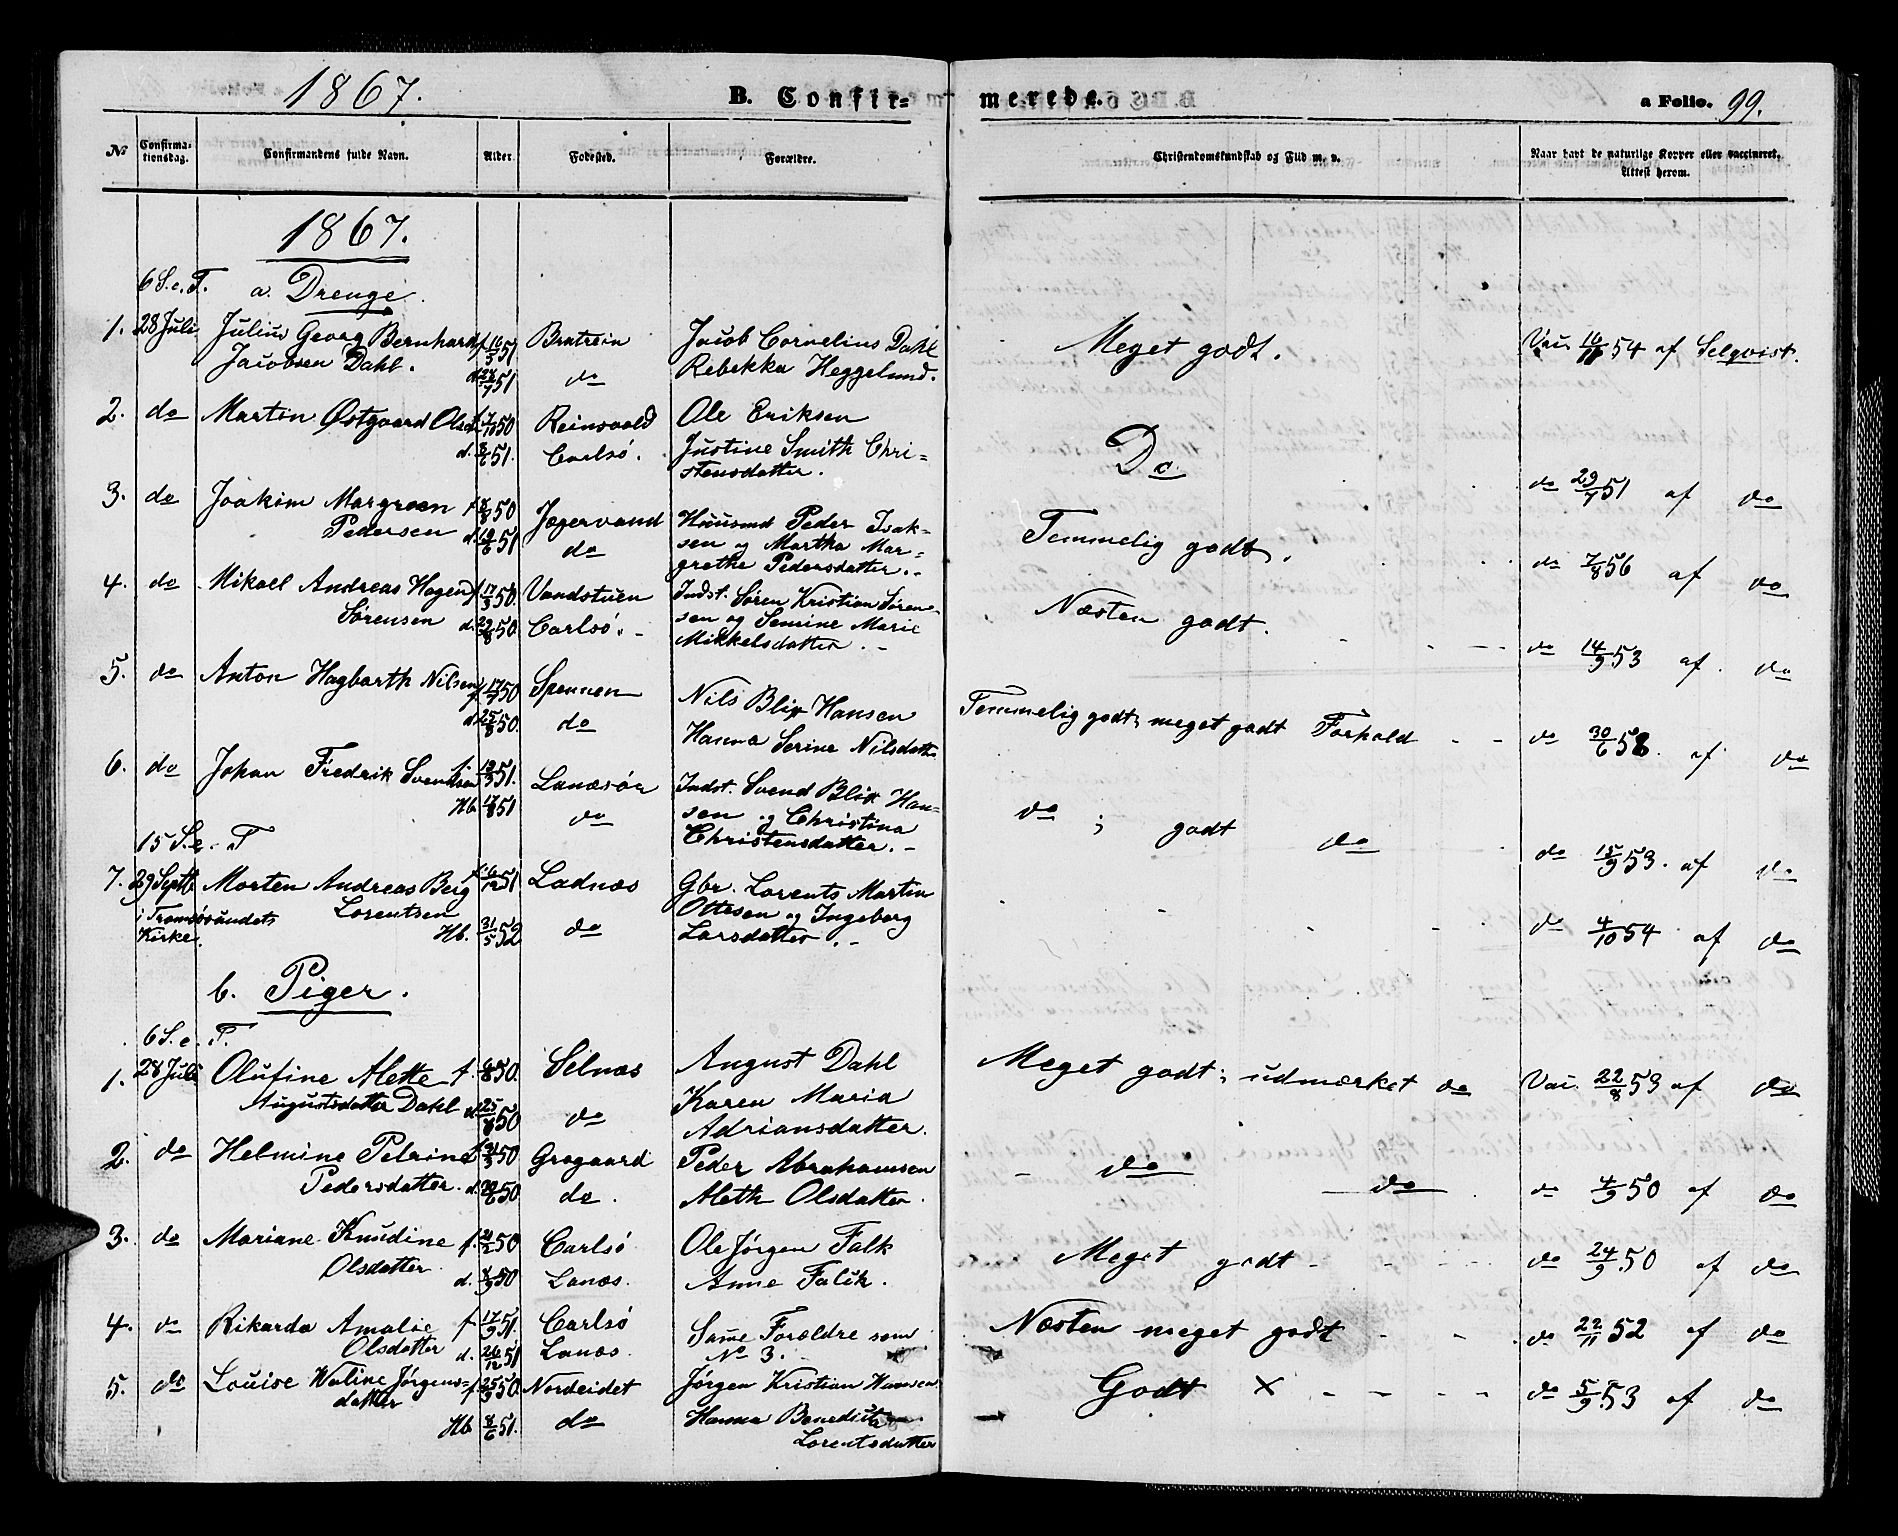 1867. B. Confir= merede. a Folio. 99.
No Confirma-tionsdag. Confirmandens fulde Navn. Alder. Fødested. Forældre. Christendomskundskab og Flid m. v. Naar havt de naturlige Kopper eller vaccineret. Attest herom.
1867.
6 S. e. T. a. Drenge.
1. 28 Juli Julius Georg Bernhard f 16/5 51 Jacob Cornelius Dahl Meget godt. Vac. 54 af Selqvist.
Jacobsen Dahl. d. 28/7 51 do Rebekka Heggelund.
2. do Martin Østgaard Olsen f 50 Reinsvold Ole Eriksen Do
d. 51. Carlsø. Justine Smith Chri-
stensdatter. do 29/7 51 af do
3. do Joakim Margreen f 50 Jægervand Huusmd Peder Isak- Temmelig godt.
Pedersen d. 51 do sen og Martha Mar-
grethe Pedersdatter.- do 7/8 56 af do
4. do Mikael Andreas Hagen f 17/3 50. Vandstuen Indst. Søren Kristian Søren- Næsten godt.
Sørensen d. 29/8 50. Carlsø.- sen og Semine Marie
Mikkelsdatter.- do 14/9 53 af do
5. do Anton Hagbarth Nilsen f 50 Spennen Nils Blix Hansen Temmelig godt; meget godt Forhold
d. 25/8 50. do Hanna Serine Nilsdatter do 30/6 58. af do
6. do Johan Fredrik Svendsen f. 51. Lanæsør Indst. Svend Blix Han- do ; godt do
Hb. 51 do sen og Christina
15 S. e. T Christensdatter.- do 15/9 53. af do
7. 29 Septb Morten Andreas Berg f. 51 Ladnæs Gbr. Lorents Martin
i Tromsøsundets Lorentsen Ottesen og Ingeborg
Kirke. Hb. 31/5 52 do Larsdatter.- do 4/10 54 af do
b. Piger.
6 S. e. T.
1. 28 Juli Olufine Alette f. 50. Selnæs August Dahl Meget godt; udmærket do Vac. 22/8 53 af do
Augustsdatter Dahl d. 25/8 50 do Karen Maria
Adriansdatter.
2. do Helmine Petrine f 50 Grøgaard Peder Abrahamsen do do do 4/9 50 af do
Pedersdatter. d. 50 do. Aleth Olsdatter.
3. do Mariane Knudine f. 50 Carlsø Ole Jørgen Falk Meget godt do 24/9 50 af do
Olsdatter. d. 50 Lanæs. Anne Falck.
4. do Rikarda Amalie f 17/9 51. Carlsø Same Forældre som Næsten meget godt do 22/11 52 af do
Olsdatter d. 26/12 51 Lanæs. No 3.
5. do Louise Waline Jørgens- f 25/9 50. Nordeidet Jørgen Kristian Hansen Godt X do 5/9 53 af do
datter Hb 51. do Hanna Benedicte
Lorentsdatter